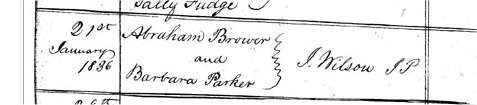 Sally Fudge
21st
January
1836
Abraham Brower
and
Barbara Parker
J. Wilson J P